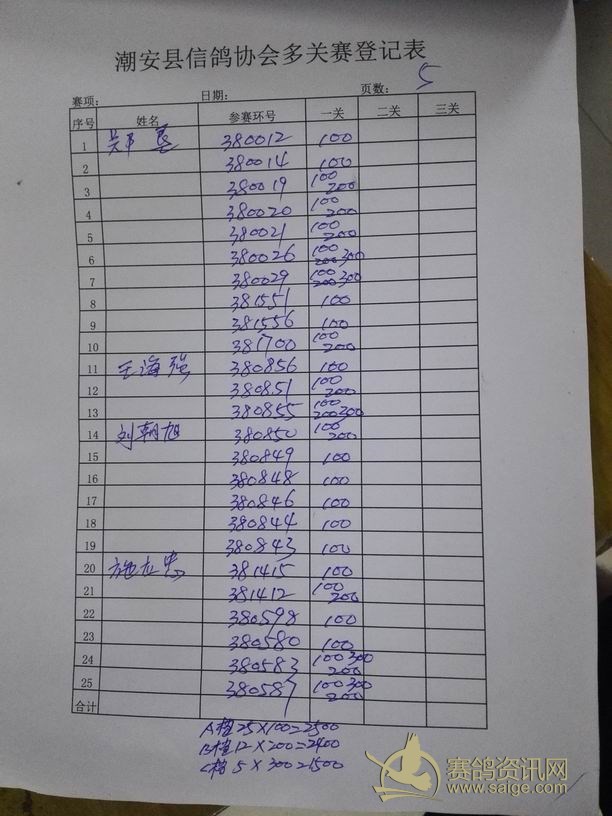 潮安县信鸽协会多关赛登记表
赛项: 日期: 页数: 5
序号 姓名 参赛环号 一关 二关 三关
1 380012 100
2 380014 100
3 380019 100 200
4 380020 100 200
5 380021 100 200
6 380026 100 200 300
7 380029 100 200 300
8 381551 100
9 381556 100
10 381700 100 200
11 王海强 380856 100
12 380851 100 200
13 380855 100 200 300
14 刘朝旭 380850 100 200
15 380849 100
16 380848 100
17 380846 100
18 380844 100
19 380843 100
20 施应忠 381415 100
21 381412 100 200
22 380598 100
23 380580 100
24 380583 100 300 200
25 380587 100 300 200
合计
A档 25×100=2500
B档 12×200=2400
C档 5×300=1500
赛鸽资讯网
www.saige.com